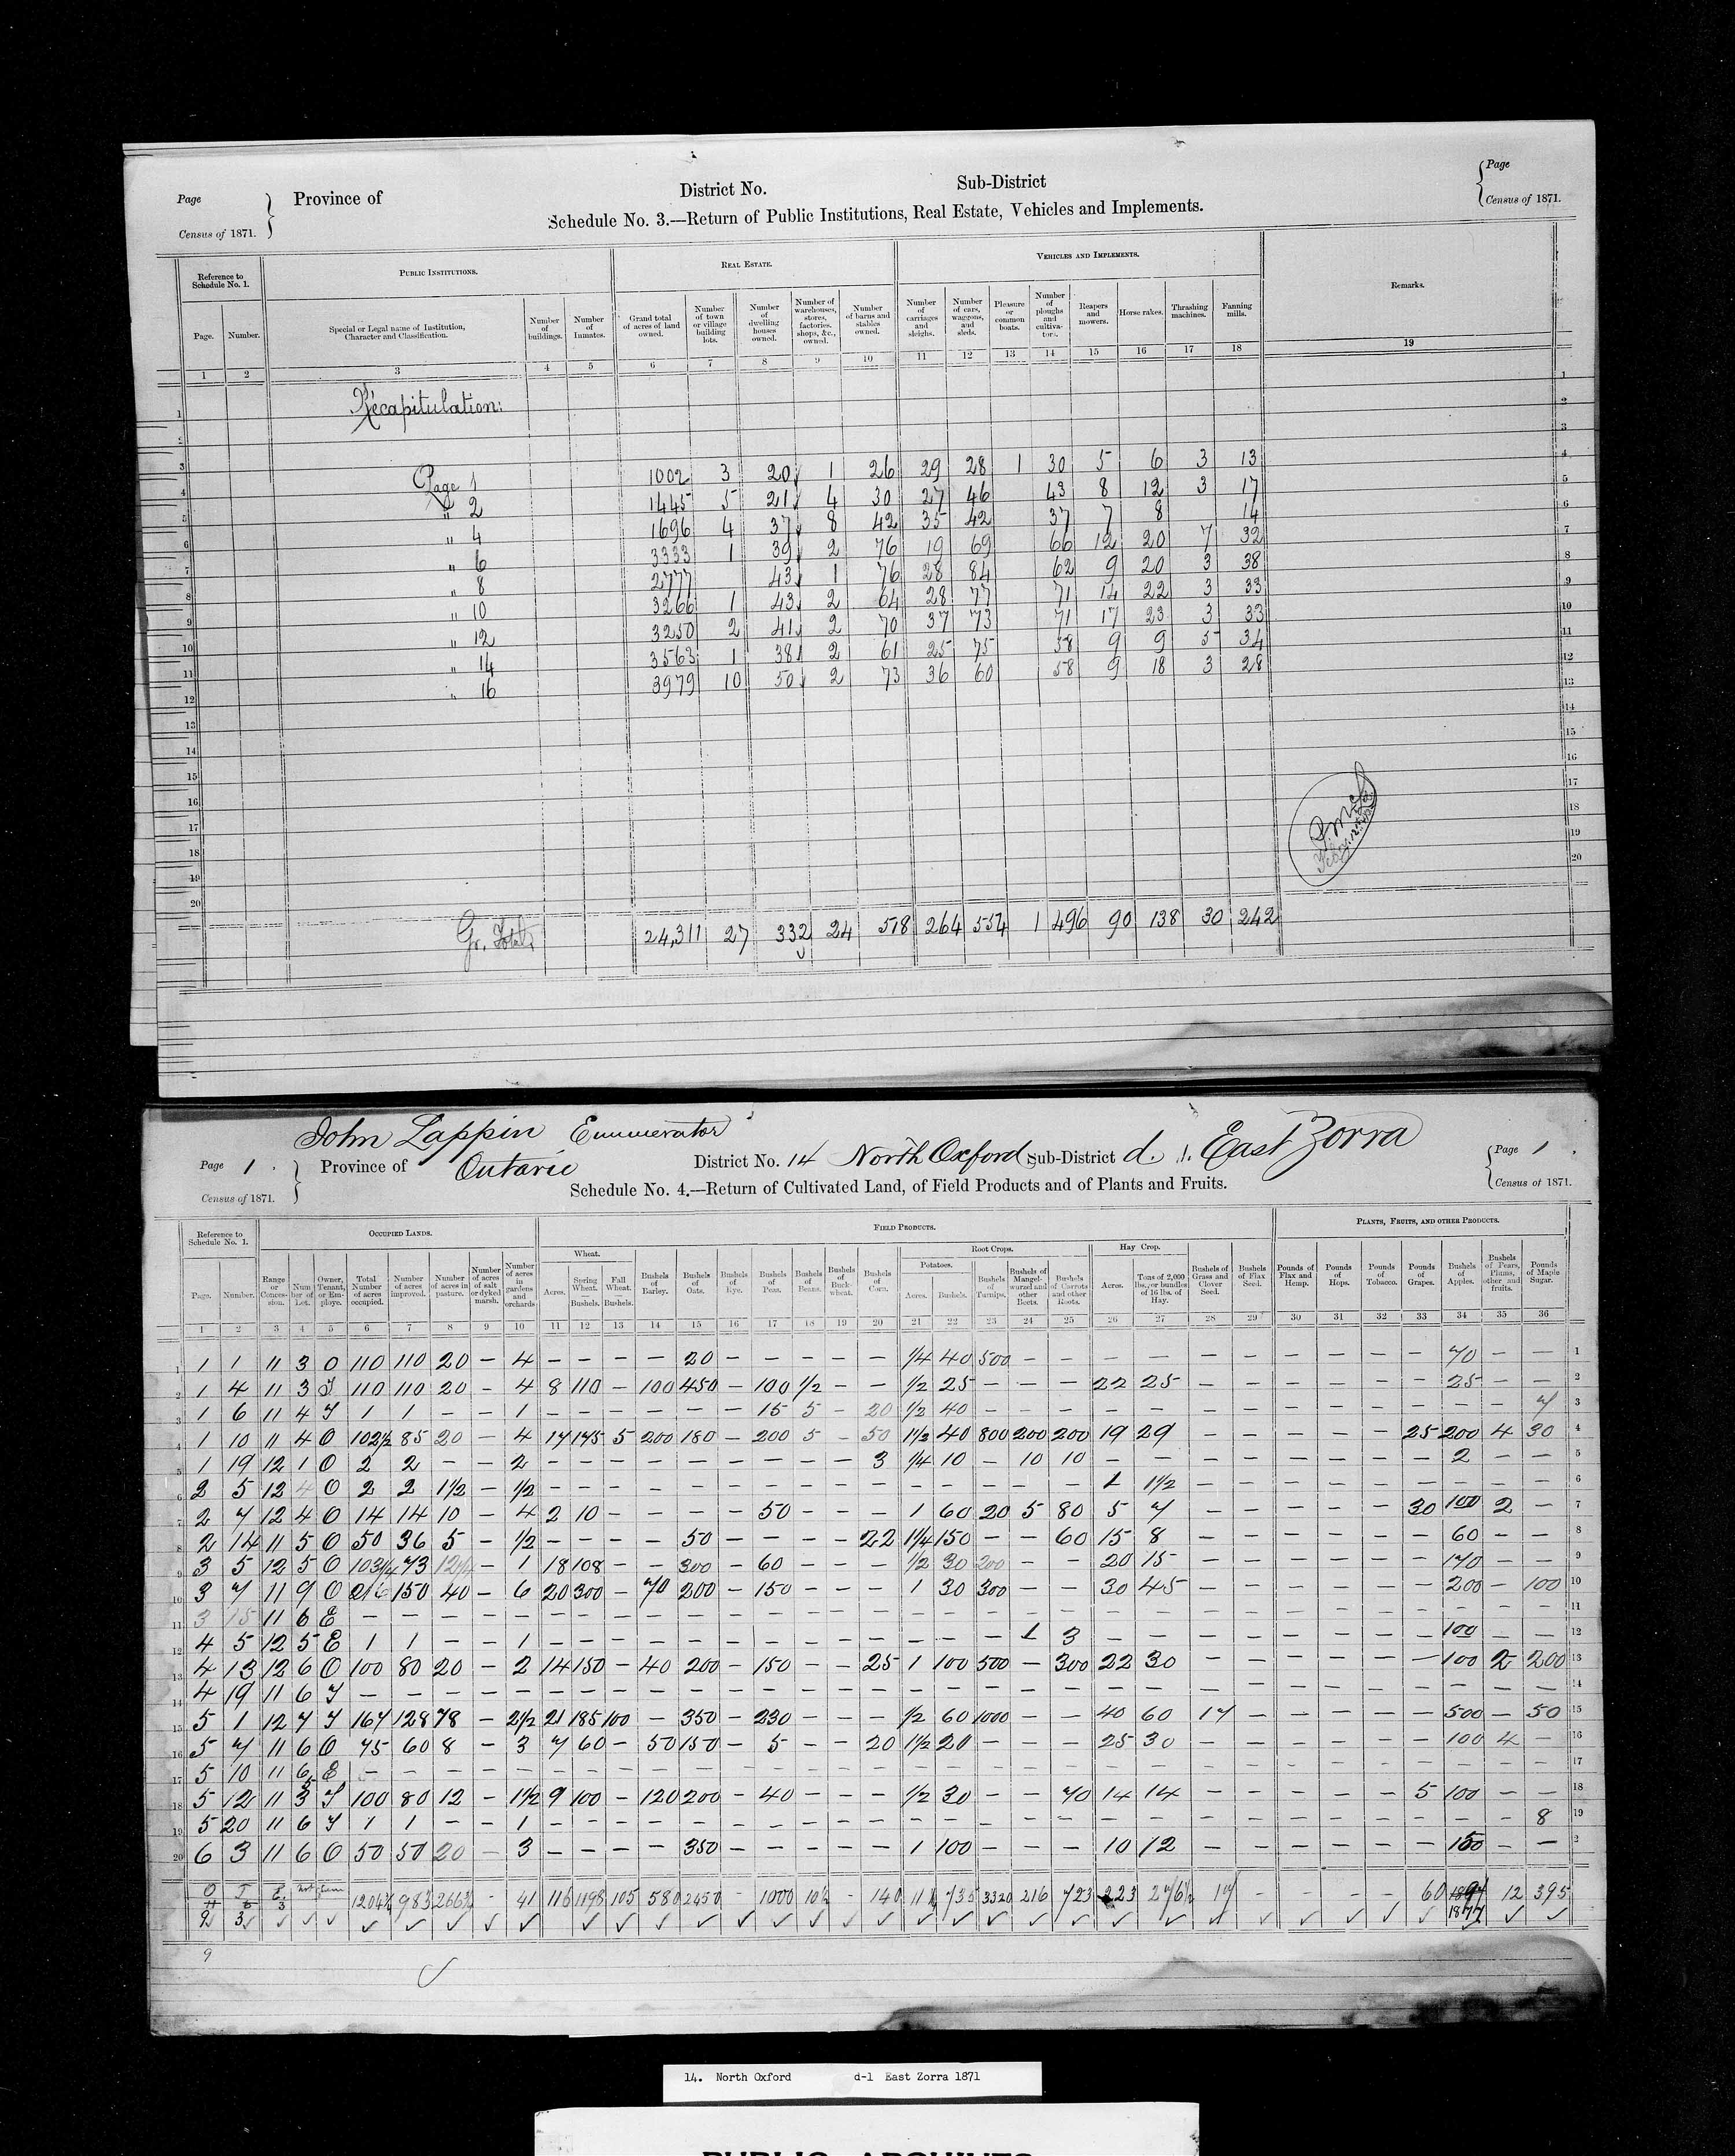 Page
Census of 1871.
Province of
District No.
Sub-District
Page
Census of 1871.
Schedule No. 3.—Return of Public Institutions, Real Estate, Vehicles and Implements.
Reference to Schedule No. 1.
PUBLIC INSTITUTIONS.
REAL ESTATE.
VEHICLES AND IMPLEMENTS.
Remarks.
Page. Number. Special or Legal name of Institution, Character and Classification. Number of buildings. Number of Inmates. Grand total of acres of land owned. Number of town or village building lots. Number of dwelling houses owned. Number of warehouses, stores, factories, shops, &c., owned. Number of barns and stables owned. Number of carriages and sleighs. Number of cars, waggons, and sleds. Pleasure or common boats. Number of ploughs and cultivators. Reapers and mowers. Horse rakes. Thrashing machines. Fanning mills.
1 2 3 4 5 6 7 8 9 10 11 12 13 14 15 16 17 18 19
Recapitulation:
Page 1 1002 3 20 1 26 29 28 1 30 5 6 3 13
" 2 1445 5 21 4 30 27 46 43 8 12 3 17
" 4 1696 4 37 8 42 35 42 37 7 8 14
" 6 3333 1 39 2 76 19 69 66 12 20 7 32
" 8 2777 43 1 76 28 84 62 9 20 3 38
" 10 3266 1 43 2 64 28 77 71 14 22 3 33
" 12 3250 2 41 2 70 37 73 71 17 23 3 33
" 14 3563 1 38 2 61 25 75 58 9 9 5 34
" 16 3979 10 50 2 73 36 60 58 9 18 3 28
Gr. Total, 24,311 27 332 24 518 264 554 1 496 90 138 30 242
John Lappin Enumerator
Page 1.
Census of 1871.
Province of Ontario
District No. 14 North Oxford Sub-District d. 1. East Zorra
Page 1.
Census of 1871.
Schedule No. 4.—Return of Cultivated Land, of Field Products and of Plants and Fruits.
Reference to Schedule No. 1.
OCCUPIED LANDS.
FIELD PRODUCTS.
PLANTS, FRUITS, AND OTHER PRODUCTS.
Wheat. Root Crops. Hay Crop.
Potatoes.
Page. Number. Range or Concession. Number of Lot. Owner, Tenant, or Employe. Total Number of acres occupied. Number of acres improved. Number of acres in pasture. Number of acres of salt or dyked marsh. Number of acres in gardens and orchards Acres. Spring Wheat. — Bushels. Fall Wheat. — Bushels. Bushels of Barley. Bushels of Oats. Bushels of Rye. Bushels of Peas. Bushels of Beans. Bushels of Buckwheat. Bushels of Corn. Acres. Bushels. Bushels of Turnips. Bushels of Mangel-wurzel and other Beets. Bushels of Carrots and other Roots. Acres. Tons of 2,000 lbs., or bundles of 16 lbs. of Hay. Bushels of Grass and Clover Seed. Bushels of Flax Seed. Pounds of Flax and Hemp. Pounds of Hops. Pounds of Tobacco. Pounds of Grapes. Bushels of Apples. Bushels of Pears, Plums, other and fruits. Pounds of Maple Sugar.
1 2 3 4 5 6 7 8 9 10 11 12 13 14 15 16 17 18 19 20 21 22 23 24 25 26 27 28 29 30 31 32 33 34 35 36
1 1 1 11 3 O 110 110 20 – 4 – – – – 20 – – – – – 1/4 40 500 – – – – – – – – – – 70 – – 1
2 1 4 11 3 T 110 110 20 – 4 8 110 – 100 450 – 100 1/2 – – 1/2 25 – – – 22 25 – – – – – – 25 – – 2
3 1 6 11 4 T 1 1 – – 1 – – – – – – 15 5 – 20 1/2 40 – – – – – – – – – – – – – 7 3
4 1 10 11 4 O 102 1/2 85 20 – 4 17 175 5 200 180 – 200 5 – 50 1 1/2 40 800 200 200 19 29 – – – – – 25 200 4 30 4
5 1 19 12 1 O 2 2 – – 2 – – – – – – – – – 3 1/4 10 – 10 10 – – – – – – – – 2 – – 5
6 2 5 12 4 O 2 2 1 1/2 – 1/2 – – – – – – – – – – – – – – – 1 1 1/2 – – – – – – – – – 6
7 2 7 12 4 O 14 14 10 – 4 2 10 – – – – 50 – – – 1 60 20 5 80 5 7 – – – – – 30 100 2 – 7
8 2 14 11 5 O 50 36 5 – 1/2 – – – – 50 – – – – 22 1 1/4 150 – – 60 15 8 – – – – – – 60 – – 8
9 3 5 12 5 O 103 1/4 73 12 1/4 – 1 18 108 – – 300 – 60 – – – 1/2 30 200 – – 20 15 – – – – – – 170 – – 9
10 3 7 11 9 O 216 150 40 – 6 20 300 – 70 200 – 150 – – – 1 30 300 – – 30 45 – – – – – – 200 – 100 10
11 3 15 11 6 E – – – – – – – – – – – – – – – – – – – – – – – – – – – – – – – 11
12 4 5 12 5 E 1 1 – – 1 – – – – – – – – – – – – – 1 3 – – – – – – – – 100 – – 12
13 4 13 12 6 O 100 80 20 – 2 14 150 – 40 200 – 150 – – 25 1 100 500 – 300 22 30 – – – – – – 100 2 200 13
14 4 19 11 6 T – – – – – – – – – – – – – – – – – – – – – – – – – – – – – – – 14
15 5 1 12 7 T 167 128 78 – 2 1/2 21 185 100 – 350 – 230 – – – 1/2 60 1000 – – 40 60 17 – – – – – 500 – 50 15
16 5 7 11 6 O 75 60 8 – 3 7 60 – 50 150 – 5 – – 20 1 1/2 20 – – – 25 30 – – – – – – 100 4 – 16
17 5 10 11 6 E – – – – – – – – – – – – – – – – – – – – – – – – – – – – – – – 17
18 5 12 11 3 T 100 80 12 – 1 1/2 9 100 – 120 200 – 40 – – – 1/2 30 – – 70 14 14 – – – – – 5 100 – – 18
19 5 20 11 6 T 1 1 – – 1 – – – – – – – – – – – – – – – – – – – – – – – – – 8 19
20 6 3 11 6 O 50 50 20 – 3 – – – – 350 – – – – – 1 100 – – – 10 12 – – – – – – 150 – –
O T E 1204 3/4 983 266 3/4 – 41 116 1198 105 580 2450 – 1000 10 1/2 – 140 11 1/4 735 3320 216 723 223 276 1/2 17 – – – – 60 1897 12 395
9 3 1877
9
14. North Oxford d-1 East Zorra 1871
PUBLIC ARCHIVES